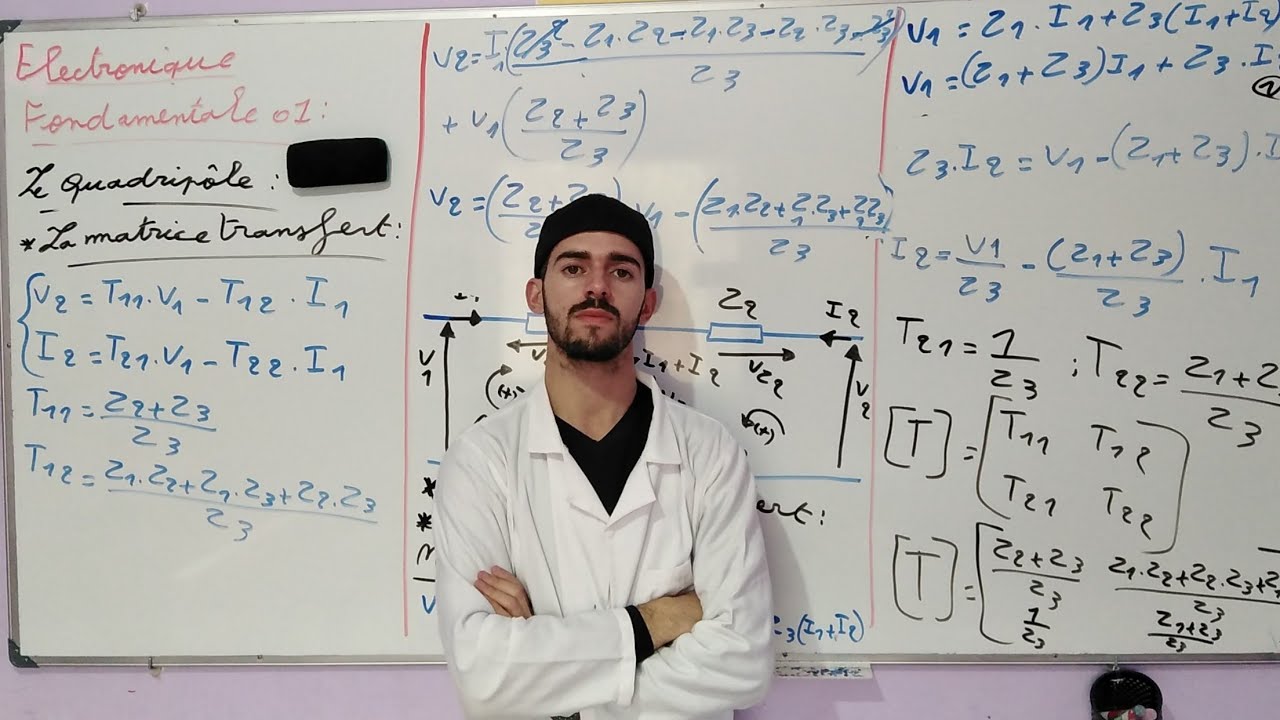 Electronique
Fondamentale 01:
Le Quadripôle:
* La matrice transfert:
V2 = T11.V1 - T12.I1
I2 = T21.V1 - T22.I1
T11 = (Z2+Z3)/Z3
T12 = (Z1.Z2+Z1.Z3+Z2.Z3)/Z3
V2 = I1((Z3² - Z1.Z2 - Z1.Z3 - Z2.Z3 - Z3²)/Z3)
+ V1((Z2+Z3)/Z3)
V2 = V1 - ((Z1.Z2+Z1.Z3+Z2Z3)/Z3)
Z2
I2
V1
I1+I2
VZ2
V2
(+)
(+)
*
*
V
3(I1+I2)
V1 = Z1.I1+Z3(I1+I2)
V1 = (Z1+Z3)I1+Z3.I
Z3.I2 = V1-(Z1+Z3).I
I2 = V1/Z3 - (Z1+Z3)/Z3 . I1
T21 = 1/Z3 ; T22 = Z1+Z/Z3
[T] = [T11 T12
T21 T22]
[T] = [(Z2+Z3)/Z3 (Z1.Z2+Z2.Z3+Z1)/Z3
1/Z3 (Z1+Z3)/Z3